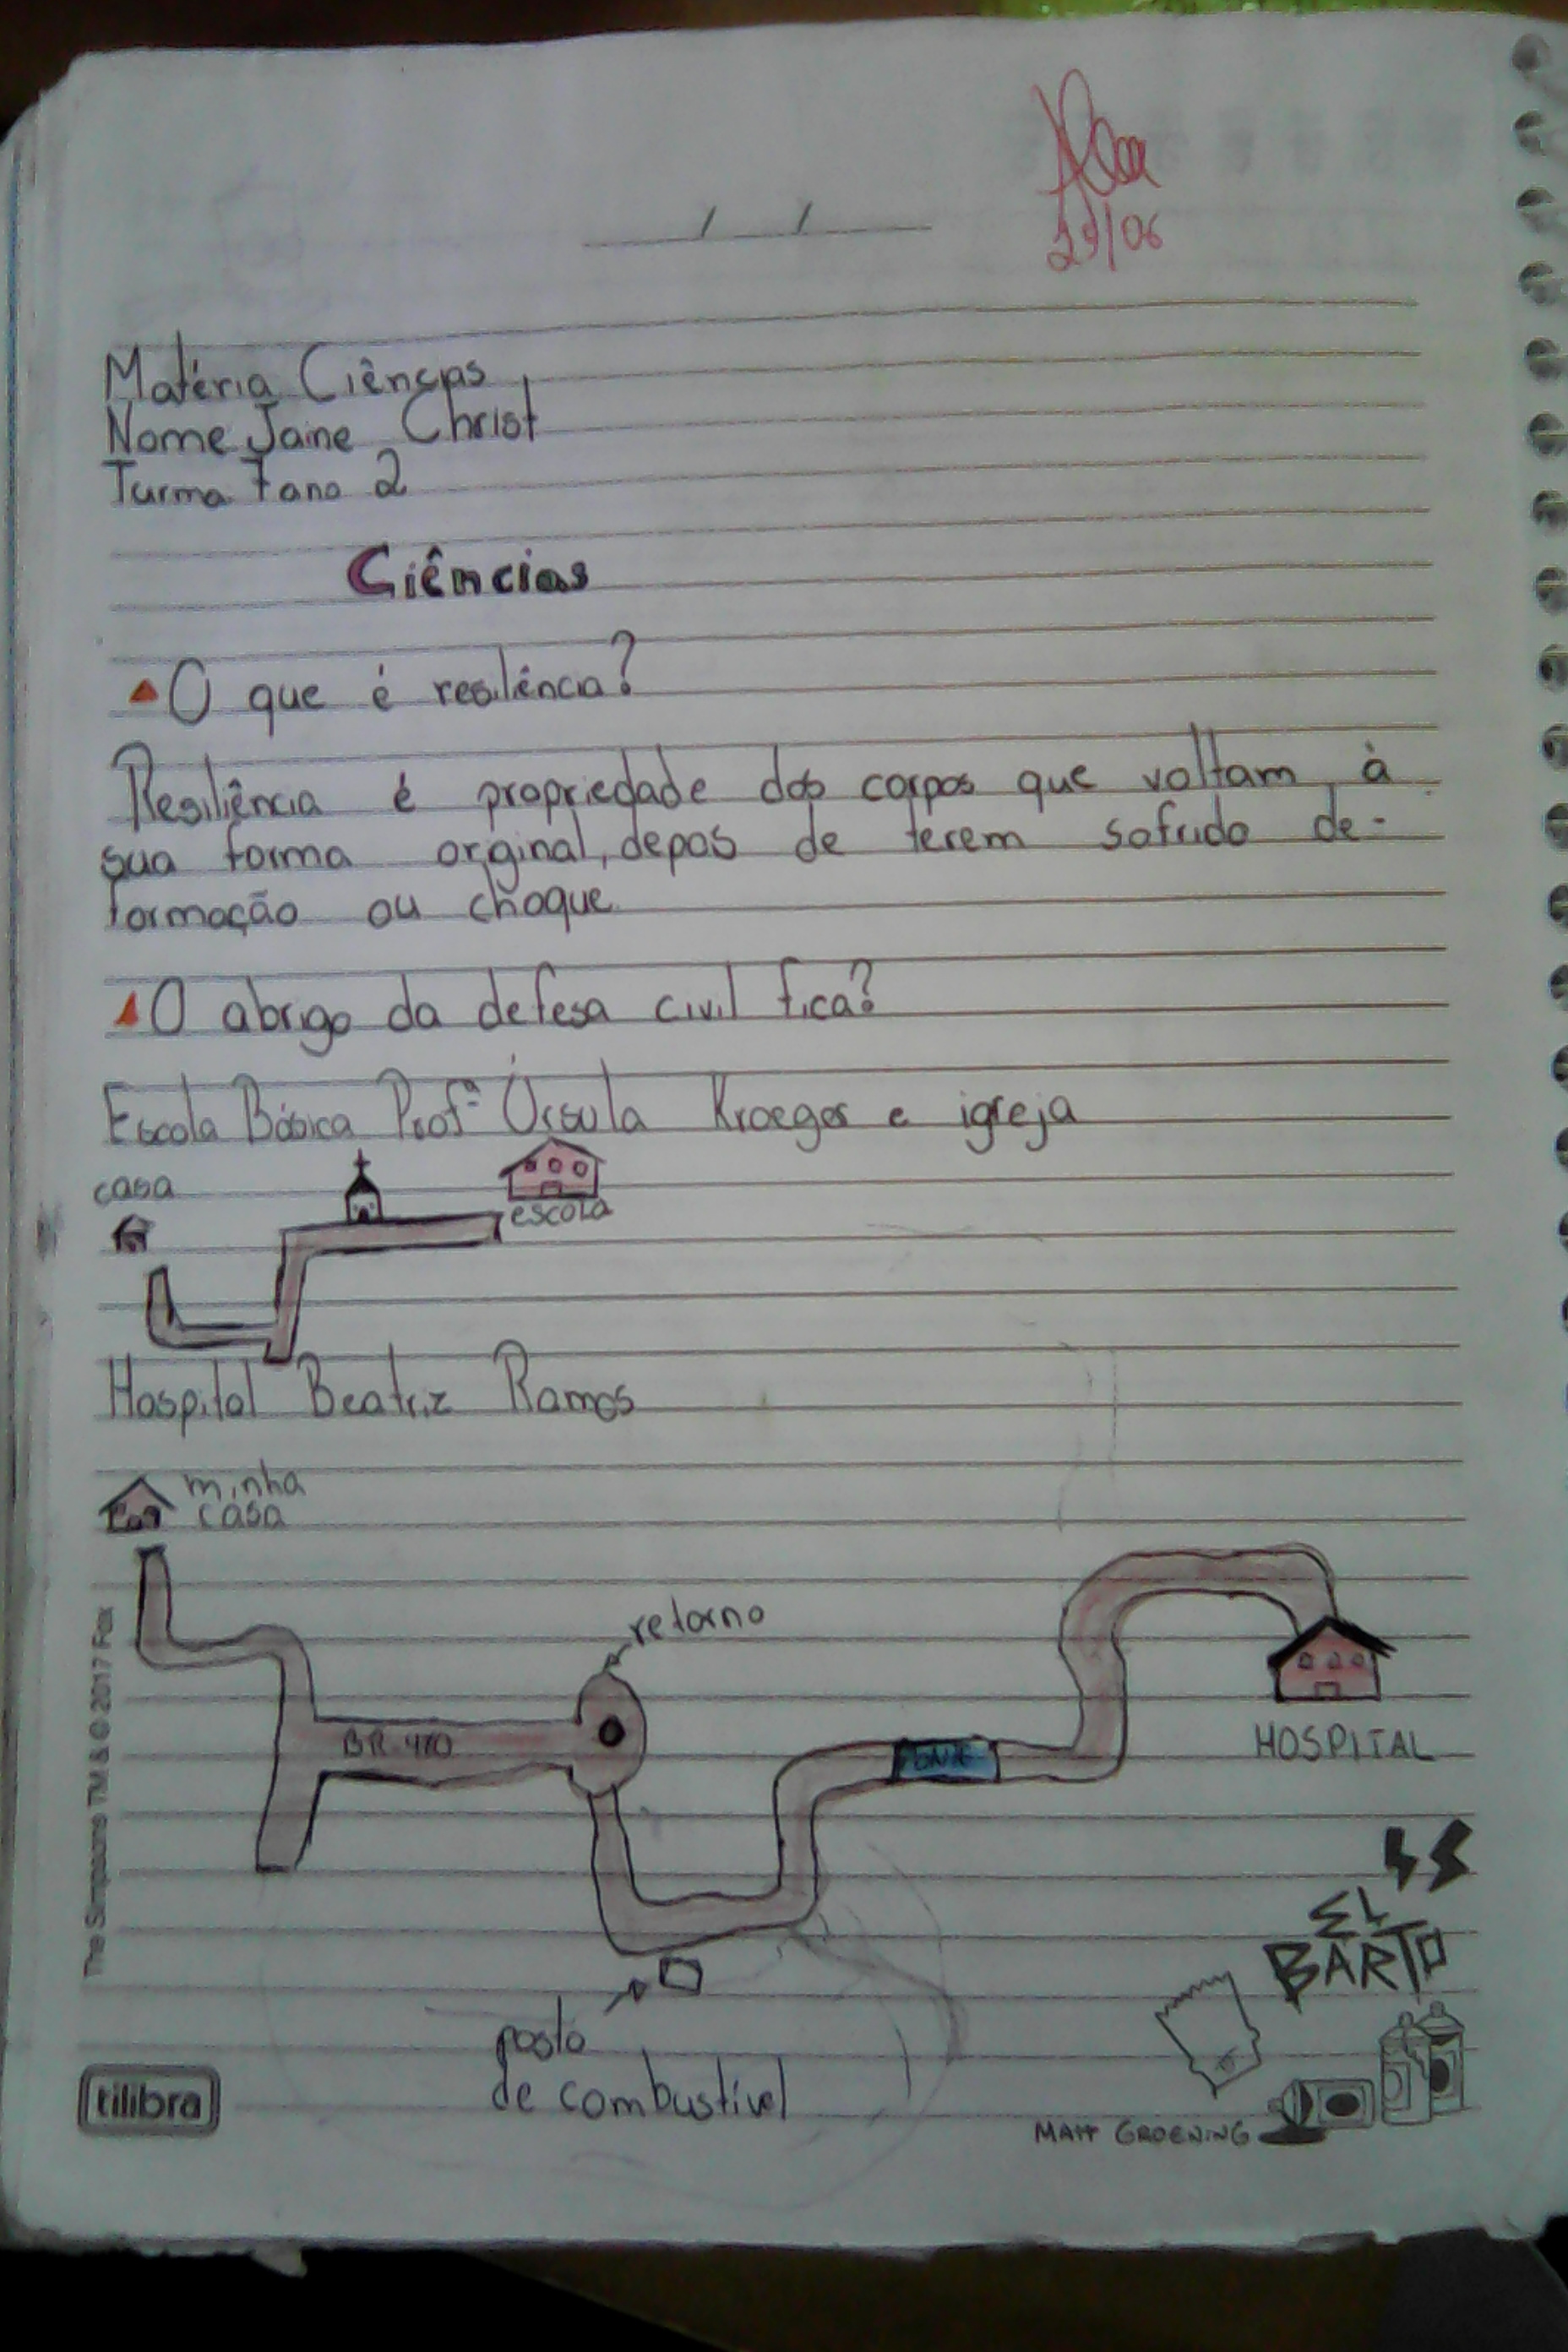 29/06
Matéria Ciências
Nome Jaine Christ
Turma 7 ano 2
Ciências
O que é resiliência?
Resiliência é propriedade dos corpos que voltam à
sua forma orginal, depos de terem sofrido de-
formação ou choque
O abrigo da defesa civil fica?
Escola Básica Profª Úrsula Kroeger e igreja
casa
escola
Hospital Beatriz Ramos
minha
casa
retorno
BR-470
PONTE
HOSPITAL
posto
de combustível
The Simpsons TM & © 2017 Fox
EL
BARTO
tilibra
MATT GROENING